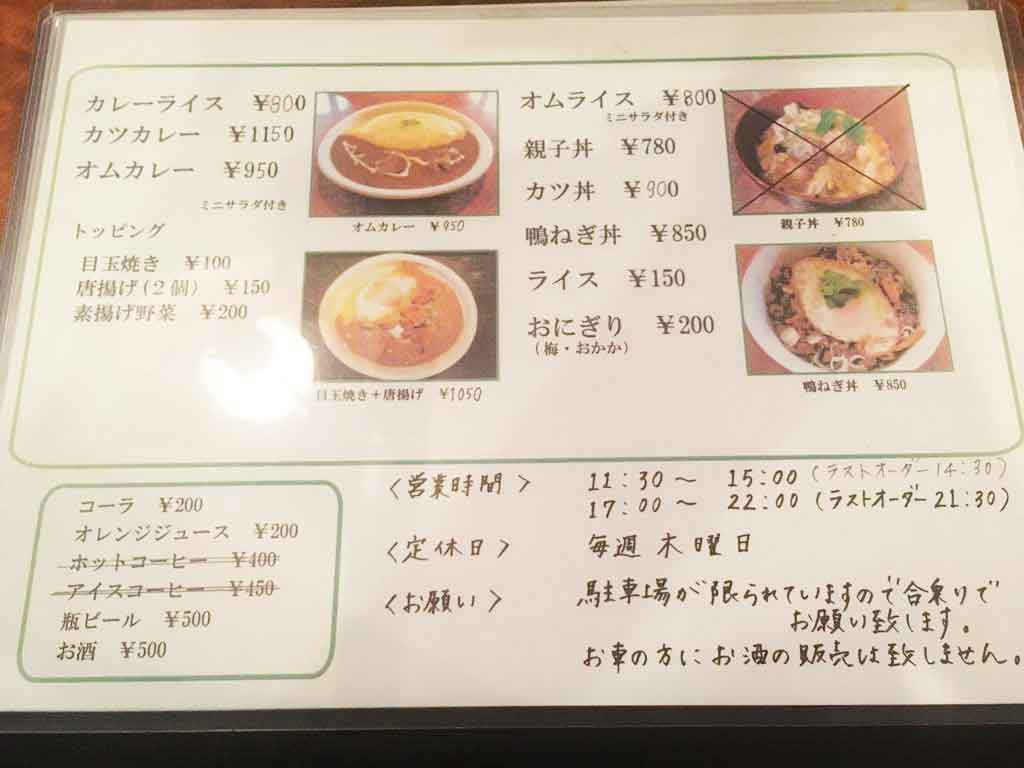 カレーライス ¥800
カツカレー ¥1150
オムカレー ¥950
ミニサラダ付き
トッピング
目玉焼き ¥100
唐揚げ(2個) ¥150
素揚げ野菜 ¥200
オムカレー ¥950
目玉焼き+唐揚げ ¥1050
オムライス ¥800
ミニサラダ付き
親子丼 ¥780
カツ丼 ¥900
鴨ねぎ丼 ¥850
ライス ¥150
おにぎり ¥200
(梅・おかか)
親子丼 ¥780
鴨ねぎ丼 ¥850
コーラ ¥200
オレンジジュース ¥200
ホットコーヒー ¥400
アイスコーヒー ¥450
瓶ビール ¥500
お酒 ¥500
〈営業時間〉 11:30〜 15:00(ラストオーダー14:30)
17:00〜 22:00(ラストオーダー21:30)
〈定休日〉 毎週木曜日
〈お願い〉 駐車場が限られていますので合乗りで
お願い致します。
お車の方にお酒の販売は致しません。